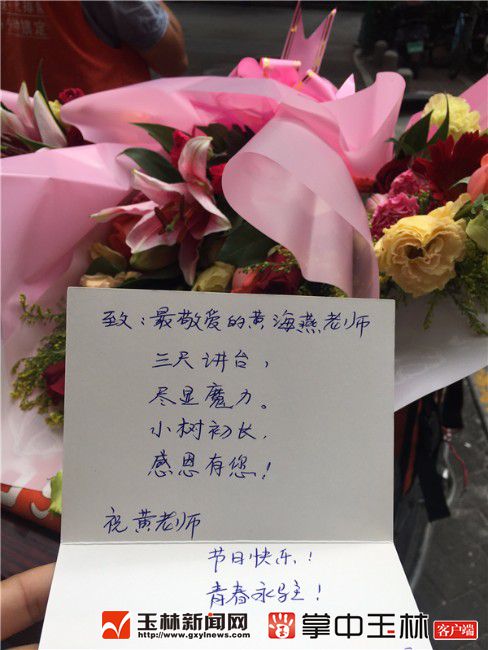 致：最敬爱的黄海燕老师
三尺讲台，
尽显魔力。
小树初长，
感恩有您！
祝黄老师
节日快乐！
青春永驻！
玉林新闻网
http://www.gxylnews.com
掌中玉林
客户端